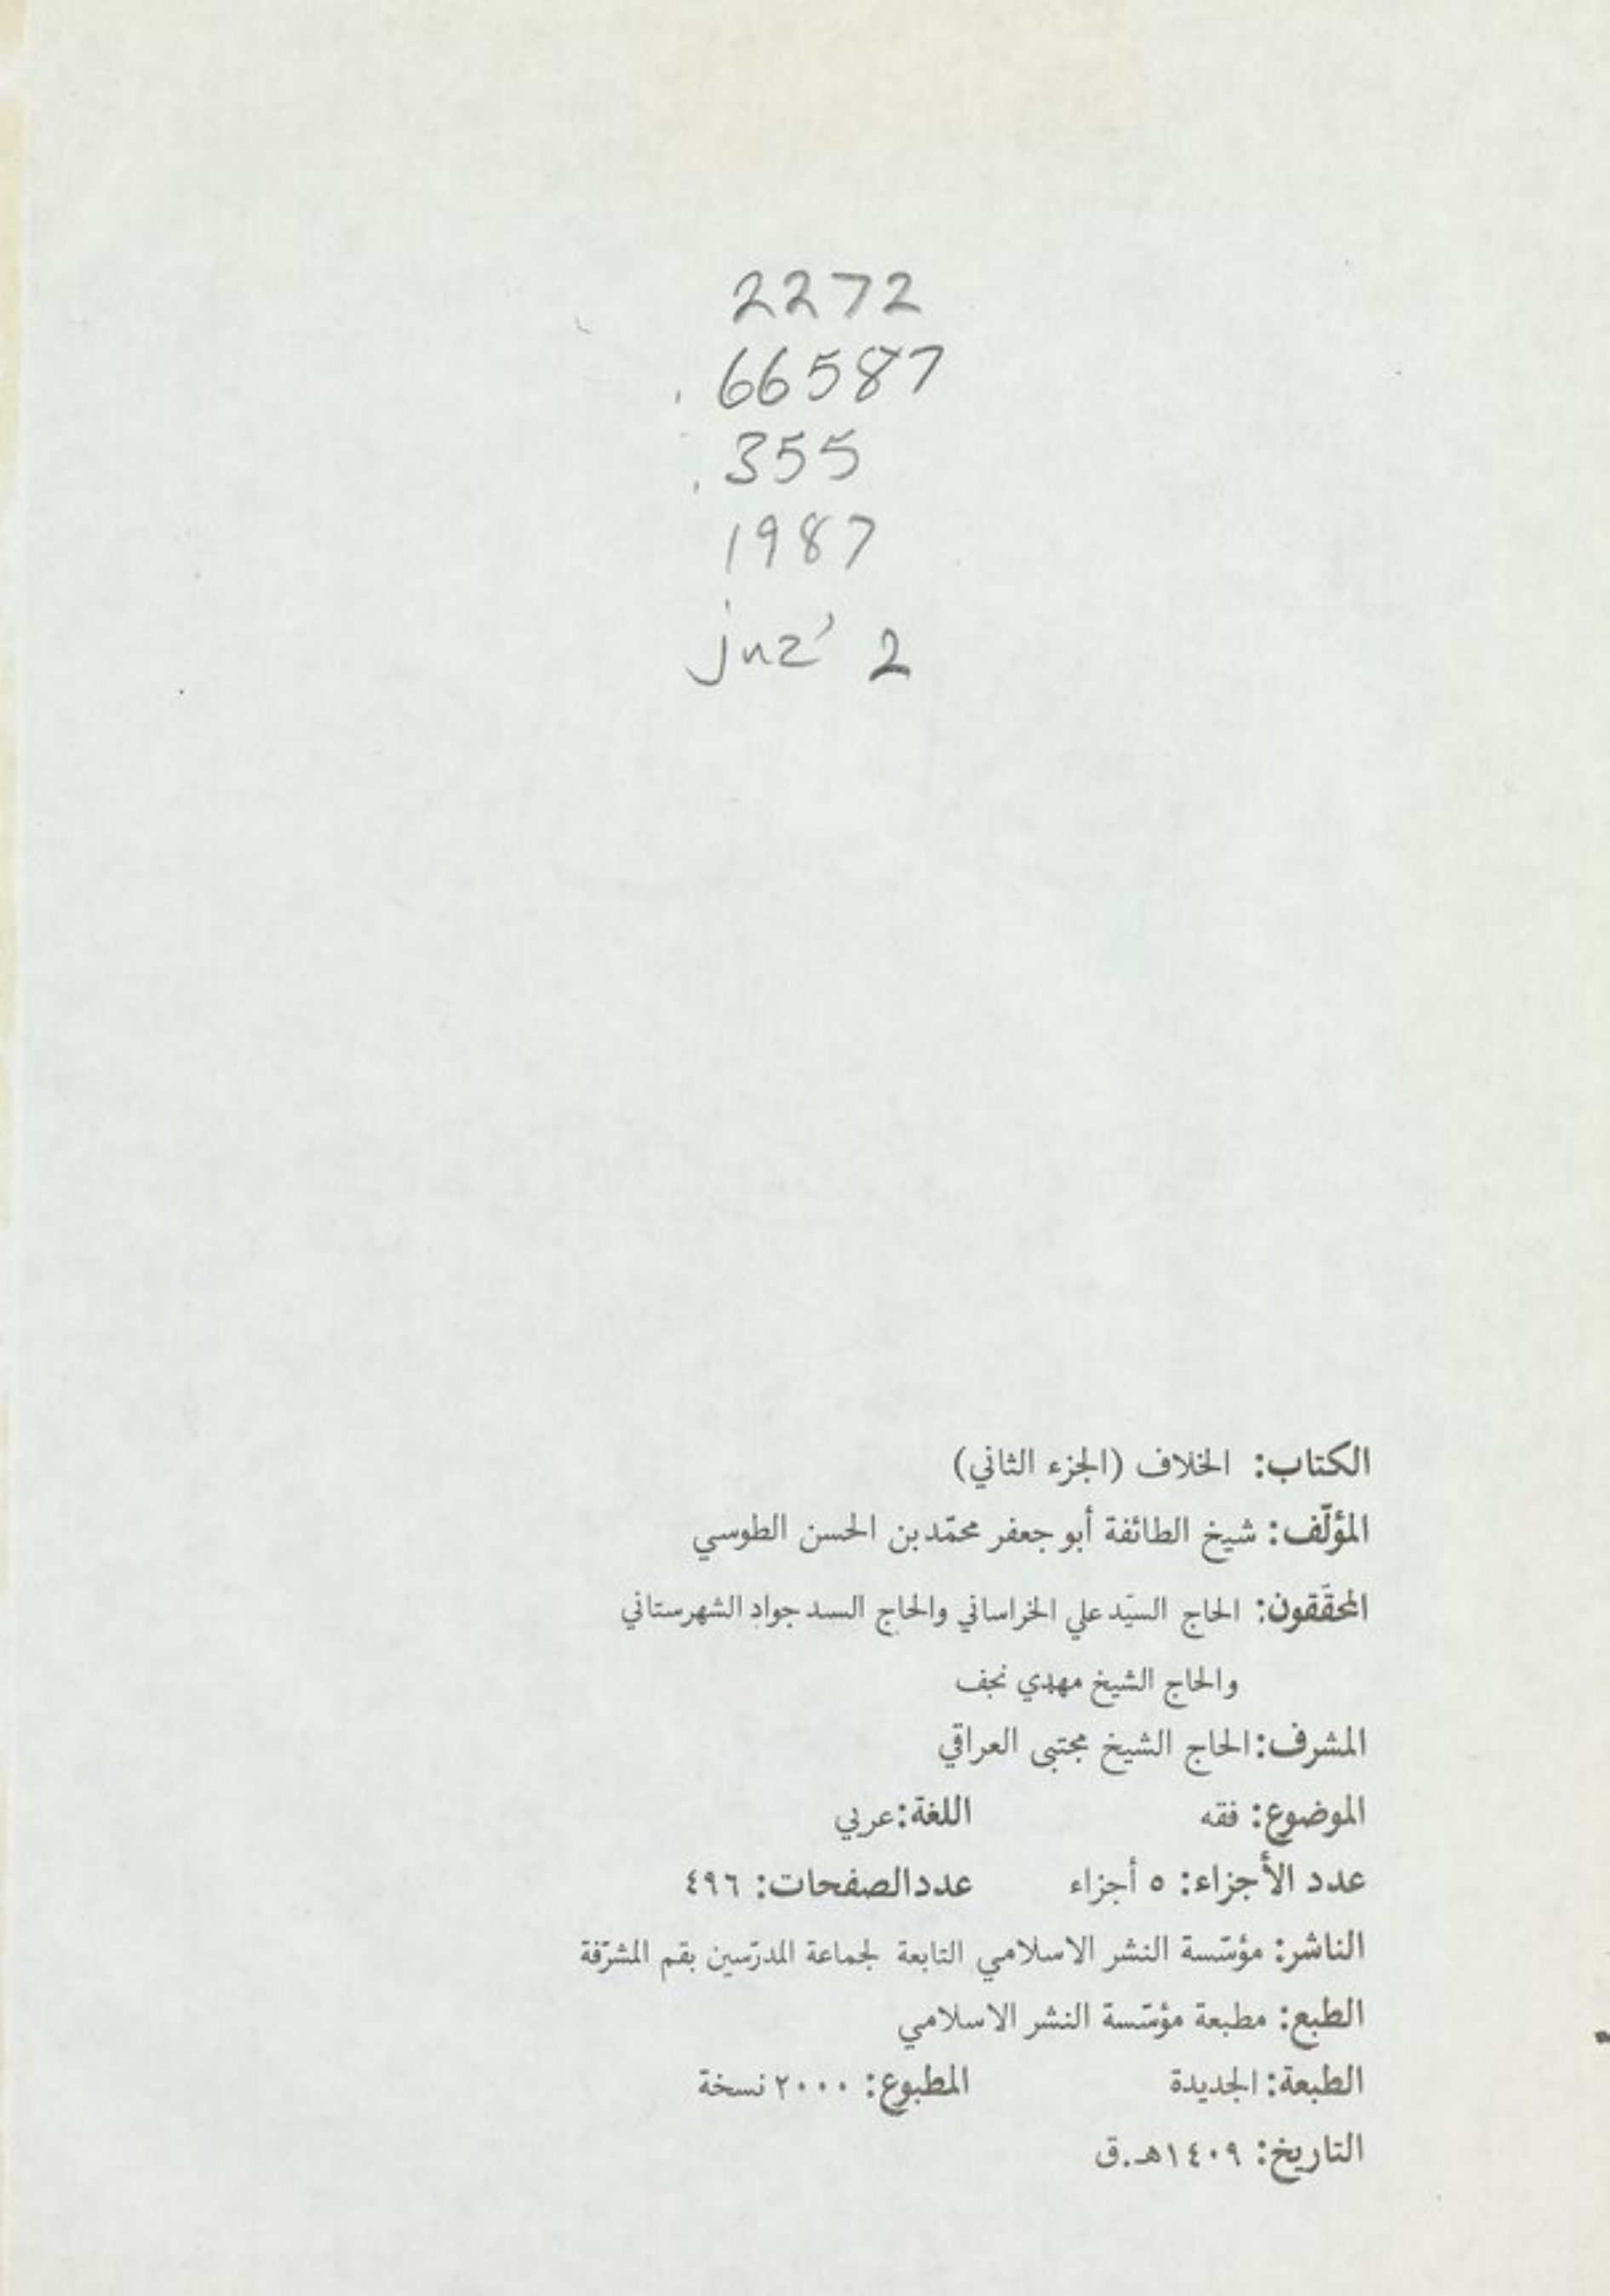 2272
.66587
.355
1987
juz' 2
الكتاب: الخلاف (الجزء الثاني)
المؤلّف: شيخ الطائفة أبو جعفر محمّد بن الحسن الطوسي
المحقّقون: الحاج السيّد علي الخراساني والحاج السد جواد الشهرستاني
والحاج الشيخ مهدي نجف
المشرف: الحاج الشيخ مجتبى العراقي
الموضوع: فقه اللغة: عربي
عدد الأجزاء: ٥ أجزاء عدد الصفحات: ٤٩٦
الناشر: مؤسّسة النشر الاسلامي التابعة لجماعة المدرّسين بقم المشرّفة
الطبع: مطبعة مؤسّسة النشر الاسلامي
الطبعة: الجديدة المطبوع: ٢٠٠٠ نسخة
التاريخ: ١٤٠٩ هـ.ق